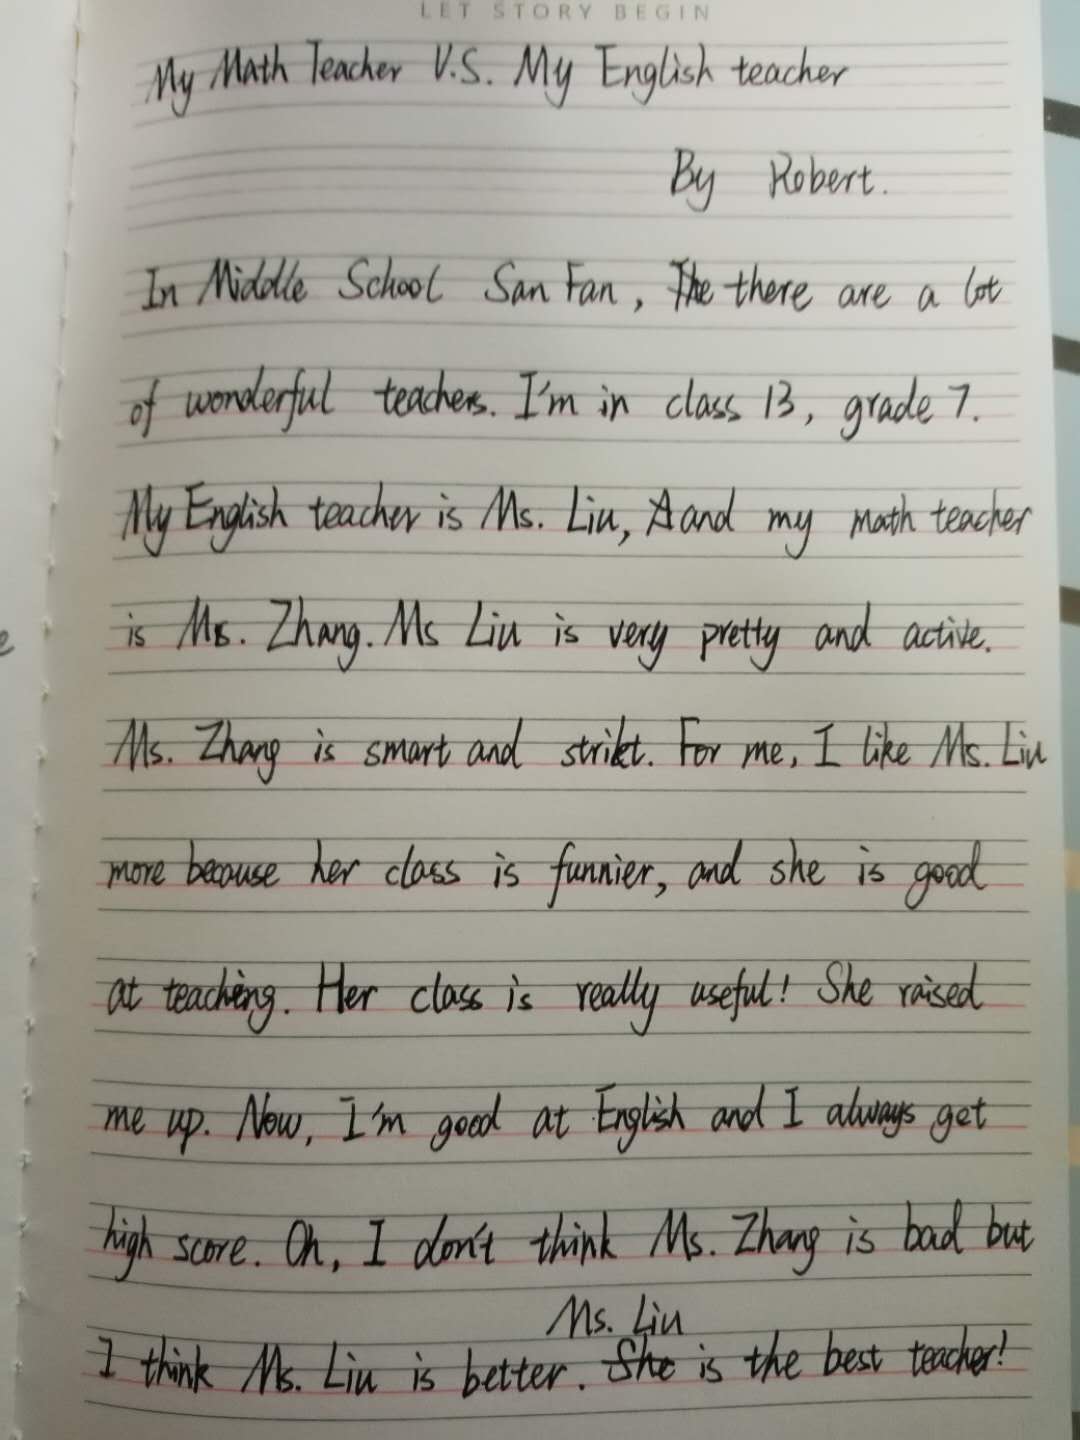 LET STORY BEGIN
My Math Teacher V.S. My English teacher
By Robert.
In Middle School San Fan, The there are a lot
of wonderful teachers. I'm in class 13, grade 7.
My English teacher is Ms. Liu, A and my math teacher
is Ms. Zhang. Ms Liu is very pretty and active.
Ms. Zhang is smart and strikt. For me, I like Ms. Liu
more because her class is funnier, and she is good
at teaching. Her class is really useful! She raised
me up. Now, I'm good at English and I always get
high score. Oh, I don't think Ms. Zhang is bad but
Ms. Liu
I think Ms. Liu is better. She is the best teacher!